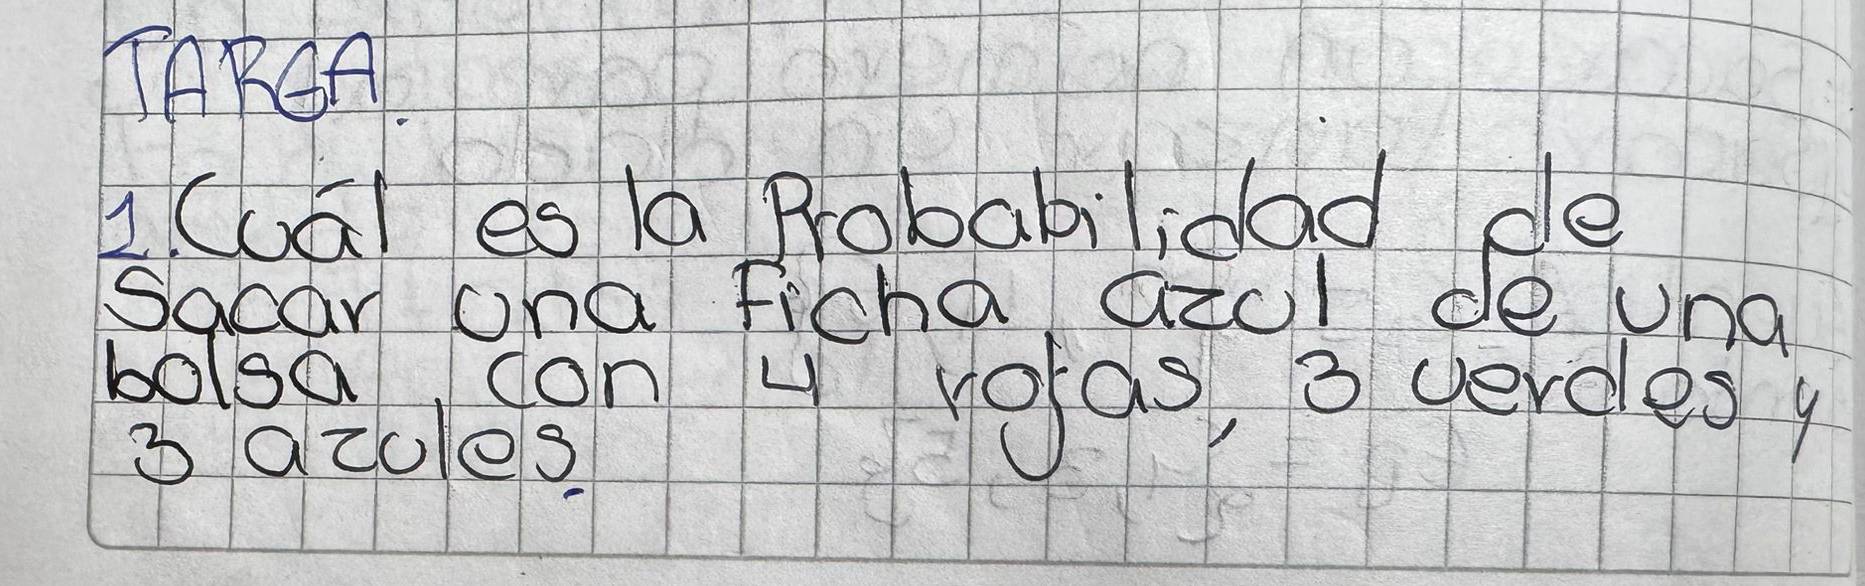 TAREA.
1. Cuál es la Probabilidad de
Sacar una Ficha azul de una
bolsa con 4 rojas, 3 verdes y
3 azules.